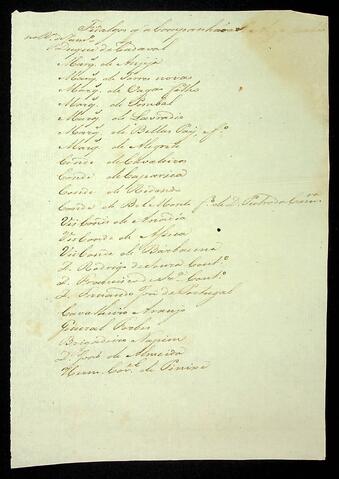 Fidalgos q̃ acompanhárão
Duque de Cadaval
Marq. de Angeja
Marq. de Torres novas
Marq. de Vagos filho
Marq. de Pombal
Marq. de Lavradio
Marq. de Bellas Pay, e f.º
Marq. de Alegrete
Conde de Cavaleiros
Conde de Caparica
Conde de Redondo
Conde de Belmonte f.º de D. Pedro da
Vis Conde de Anadia
Vis Conde de Asseca
Vis Conde de Barbacena
D. Rodrigo de Souza Cout.º
D. Francisco de Sz.ª Cout.º
D. Fernando José de Portugal
Cavalheiro Araujo
General Forbes
Brigadeiro Napion
D. José de Almeida
Hum Cor.el de Peniche